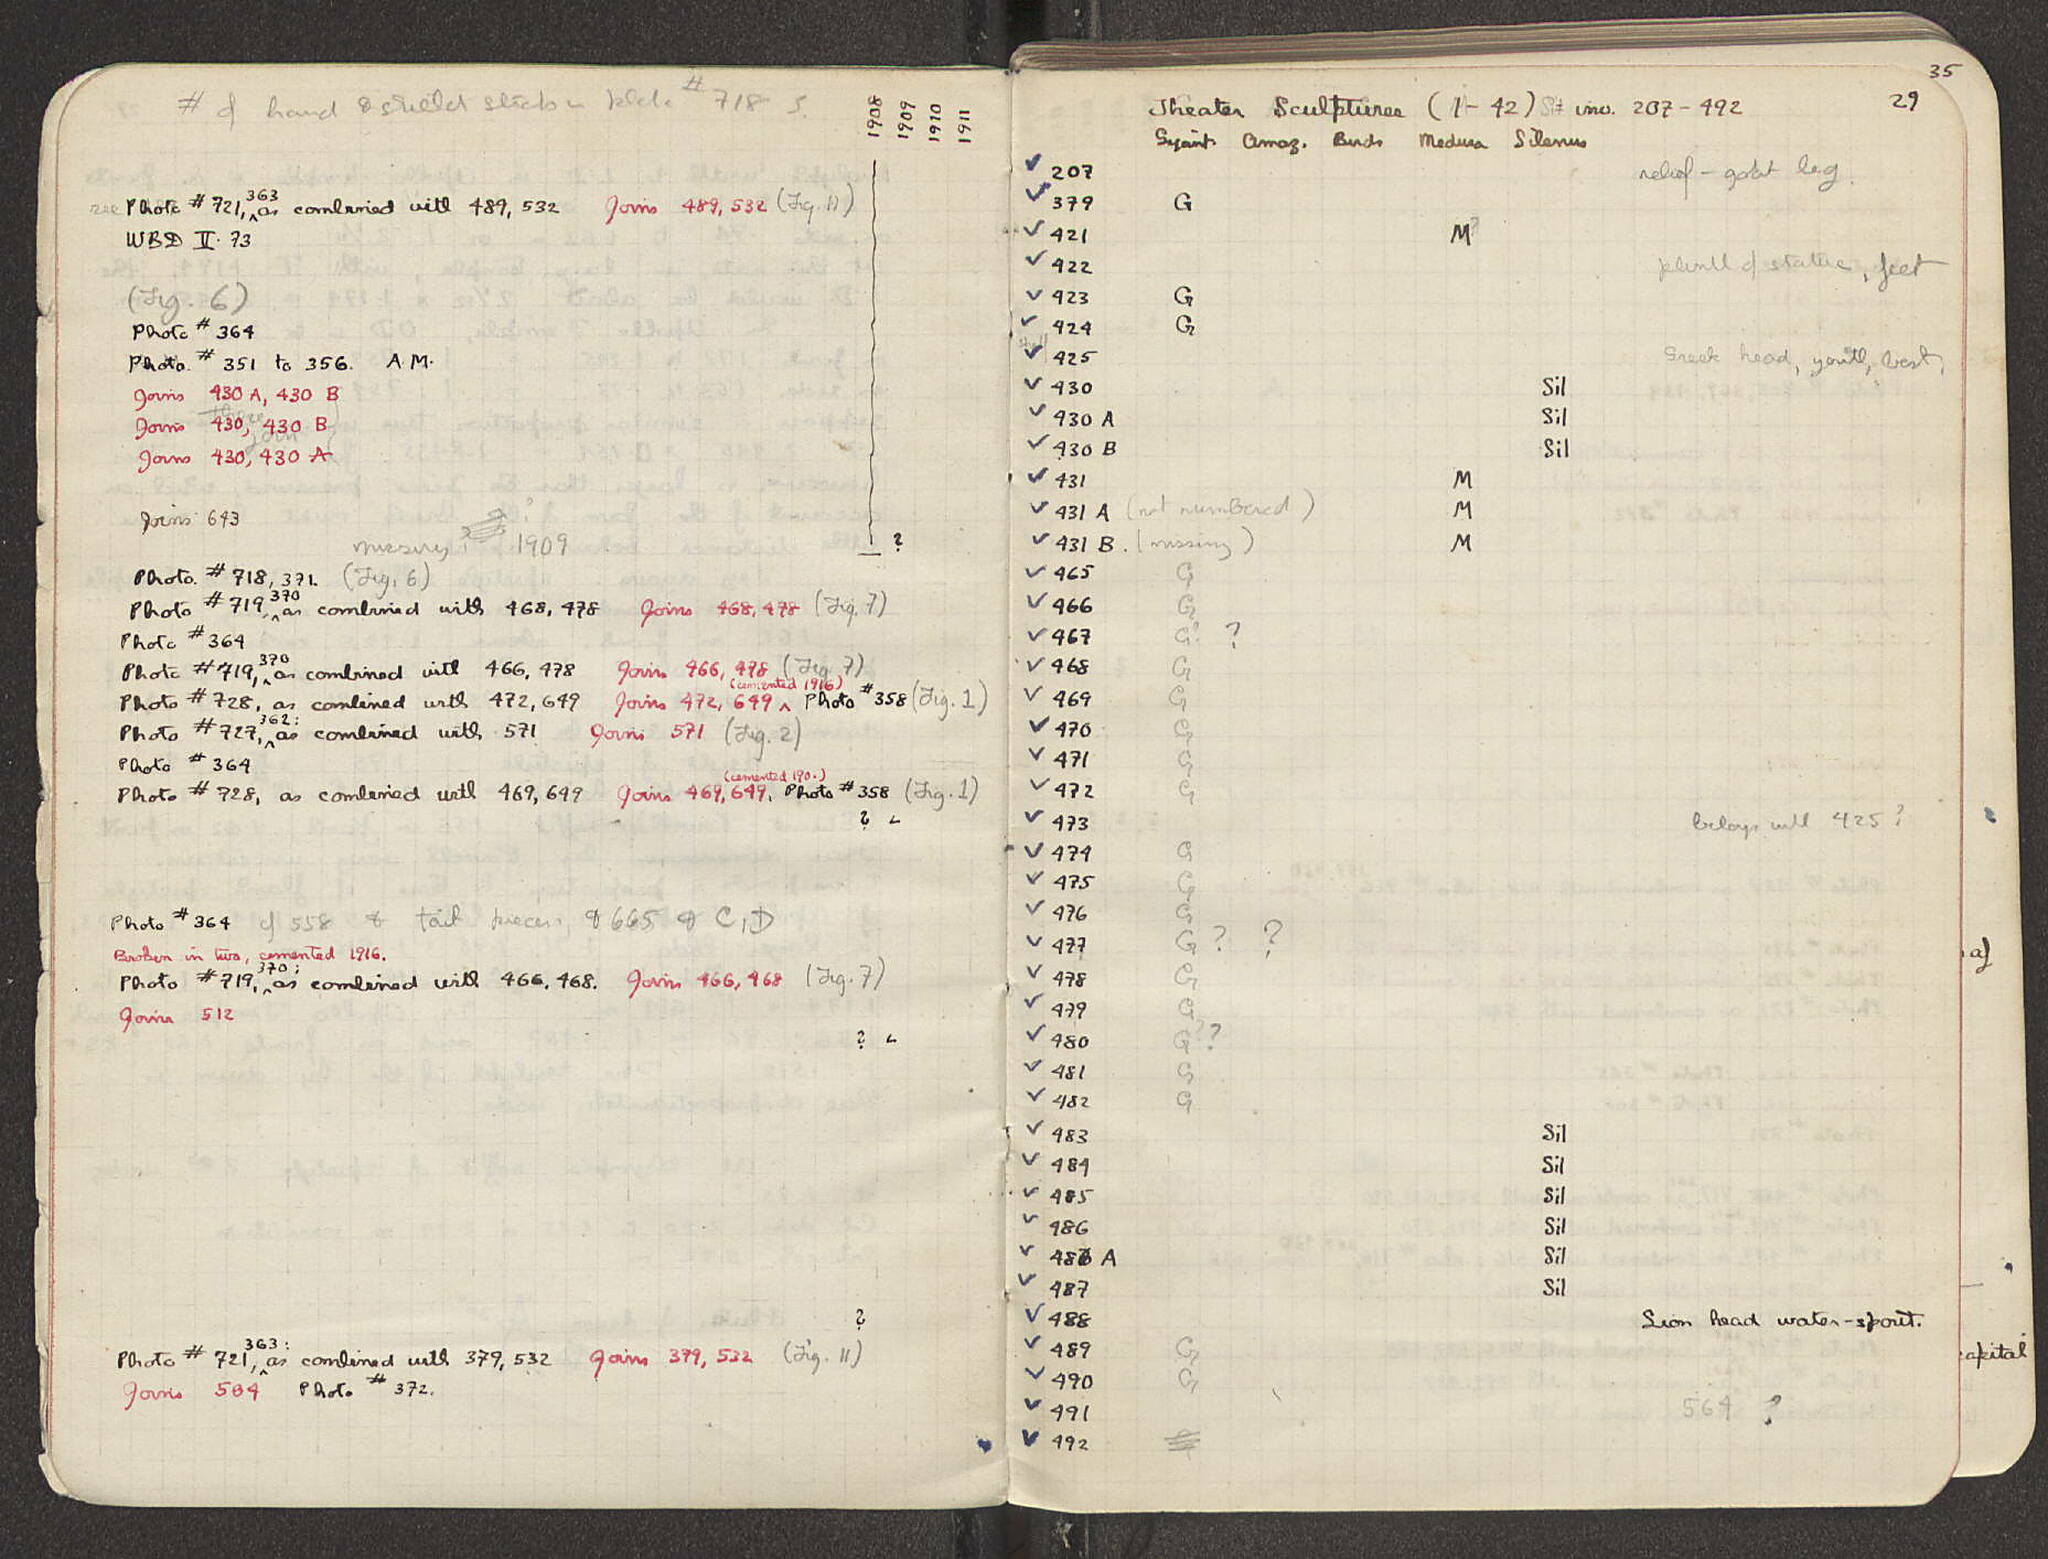 # of hand & shield stick in photo # 718 s.
1908 1909 1910 1911
see Photo # 721, 363 as combined with 489, 532 Joins 489, 532 (Fig. 11)
WBD II. 73
(Fig. 6)
Photo # 364
Photo. # 351 to 356. A.M.
Joins 430 A, 430 B
Joins 430, 430 B
Joins 430, 430 A
join
Joins 643
missing, ? 1909 ?
Photo. # 718, 371. (Fig. 6)
Photo # 719, 370 as combined with 468, 478 Joins 468, 478 (Fig. 7)
Photo # 364
Photo # 719, 370 as combined with 466, 478 Joins 466, 478 (Fig. 7)
Photo # 728, as combined with 472, 649 Joins 472, 649 (cemented 1916) Photo # 358 (Fig. 1)
Photo # 727, 362: as combined with 571 Joins 571 (Fig. 2)
Photo # 364
Photo # 728, as combined with 469, 649 Joins 469, 649, (cemented 190.) Photo # 358 (Fig. 1)
?
Photo # 364 cf 558 & tail pieces, & 665 & C, D
Broken in two, cemented 1916.
Photo # 719, 370; as combined with 466, 468. Joins 466, 468 (Fig. 7)
Joins 512
?
?
Photo # 721, 363: as combined with 379, 532 Joins 379, 532 (Fig. 11)
Joins 504 Photo # 372.
35
29
Theater Sculptures (1 - 42) S# inv. 207 - 492
Gyant. Amaz. Birds Medusa Silenus
✓ 207 relief - goat leg.
✓ 379 G
✓ 421 M?
✓ 422 plinth of statue, feet
✓ 423 G
✓ 424 G
✓ 425 Greek head, youth, best.
✓ 430 Sil
✓ 430 A Sil
✓ 430 B Sil
✓ 431 M
✓ 431 A (not numbered) M
✓ 431 B. (missing) M
✓ 465 G
✓ 466 G
✓ 467 G? ?
✓ 468 G
✓ 469 G
✓ 470 G
✓ 471 G
✓ 472 G
✓ 473 belongs with 425?
✓ 474 G
✓ 475 G
✓ 476 G
✓ 477 G? ?
✓ 478 G
✓ 479 G
✓ 480 G??
✓ 481 G
✓ 482 G
✓ 483 Sil
✓ 484 Sil
✓ 485 Sil
✓ 486 Sil
✓ 486 A Sil
✓ 487 Sil
✓ 488 Lion head water-spout.
✓ 489 G
✓ 490 G
✓ 491 564 ?
✓ 492